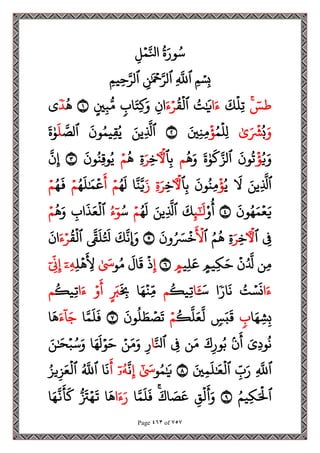 سُورَةُ النَّمْلِ
بِسْمِ ٱللَّهِ ٱلرَّحْمَٰنِ ٱلرَّحِيمِ
طسٓۚ تِلْكَ ءَايَٰتُ ٱلْقُرْءَانِ وَكِتَابٖ مُّبِينٍ ١ هُدٗى
وَبُشْرَىٰ لِلْمُؤْمِنِينَ ٢ ٱلَّذِينَ يُقِيمُونَ ٱلصَّلَوٰةَ
وَيُؤْتُونَ ٱلزَّكَوٰةَ وَهُم بِٱلْأَخِرَةِ هُمْ يُوقِنُونَ ٣ إِنَّ
ٱلَّذِينَ لَا يُؤْمِنُونَ بِٱلْأَخِرَةِ زَيَّنَّا لَهُمْ أَعْمَٰلَهُمْ فَهُمْ
يَعْمَهُونَ ٤ أُوْلَٰٓئِكَ ٱلَّذِينَ لَهُمْ سُوٓءُ ٱلْعَذَابِ وَهُمْ
فِي ٱلْأَخِرَةِ هُمُ ٱلْأَخْسَرُونَ ٥ وَإِنَّكَ لَتُلَقَّى ٱلْقُرْءَانَ
مِن لَّدُنْ حَكِيمٍ عَلِيمٍ ٦ إِذْ قَالَ مُوسَىٰ لِأَهْلِهِۦٓ إِنِّيَ
ءَانَسْتُ نَارٗا سَـَٔاتِيكُم مِّنْهَا بِخَبَرٍ أَوْ ءَاتِيكُم
بِشِهَابِ قَبَسٖ لَّعَلَّكُمْ تَصْطَلُونَ ٧ فَلَمَّا جَآءَهَا
نُودِيَ أَنۢ بُورِكَ مَن فِي ٱلنَّارِ وَمَنْ حَوْلَهَا وَسُبْحَٰنَ
ٱللَّهِ رَبِّ ٱلْعَٰلَمِينَ ٨ يَٰمُوسَىٰٓ إِنَّهُۥٓ أَنَا ٱللَّهُ ٱلْعَزِيزُ
ٱلْحَكِيمُ ٩ وَأَلْقِ عَصَاكَۚ فَلَمَّا رَءَاهَا تَهْتَزُّ كَأَنَّهَا
Page ٤٦٣ of ٧٥٧